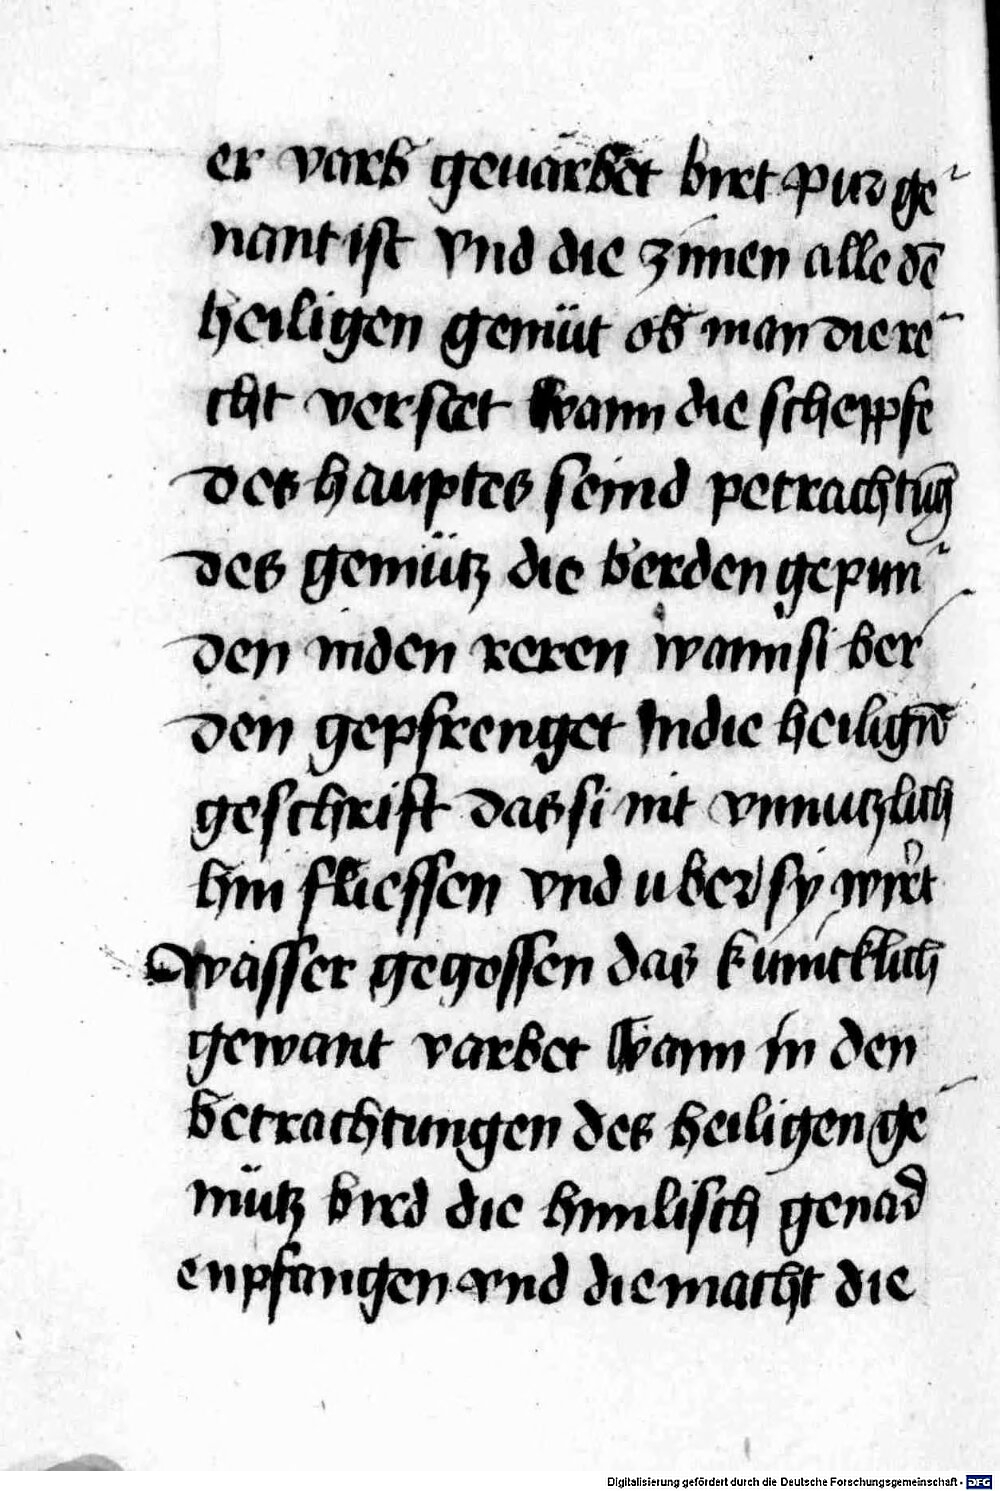 er varb geuärbet birt pur ge
nant ist vnd die zinnen alle dē
heiligen gemüt ob man die re
cht verstet wann die schepfe
des hauptes seind petrachtūg
des gemütz die berden gepun
den inden reren wann si ber
den gepfrenget in die heiligē
geschrift das si nit vnnutzlich
hin fliessen vnd uber sy wirt
wasser gegossen das kunicklich
gewant varbet wann in den
betrachtungen des heiligen ge
mütz bird die himlisch genad
enpfangen vnd die macht die
Digitalisierung gefördert durch die Deutsche Forschungsgemeinschaft - DFG